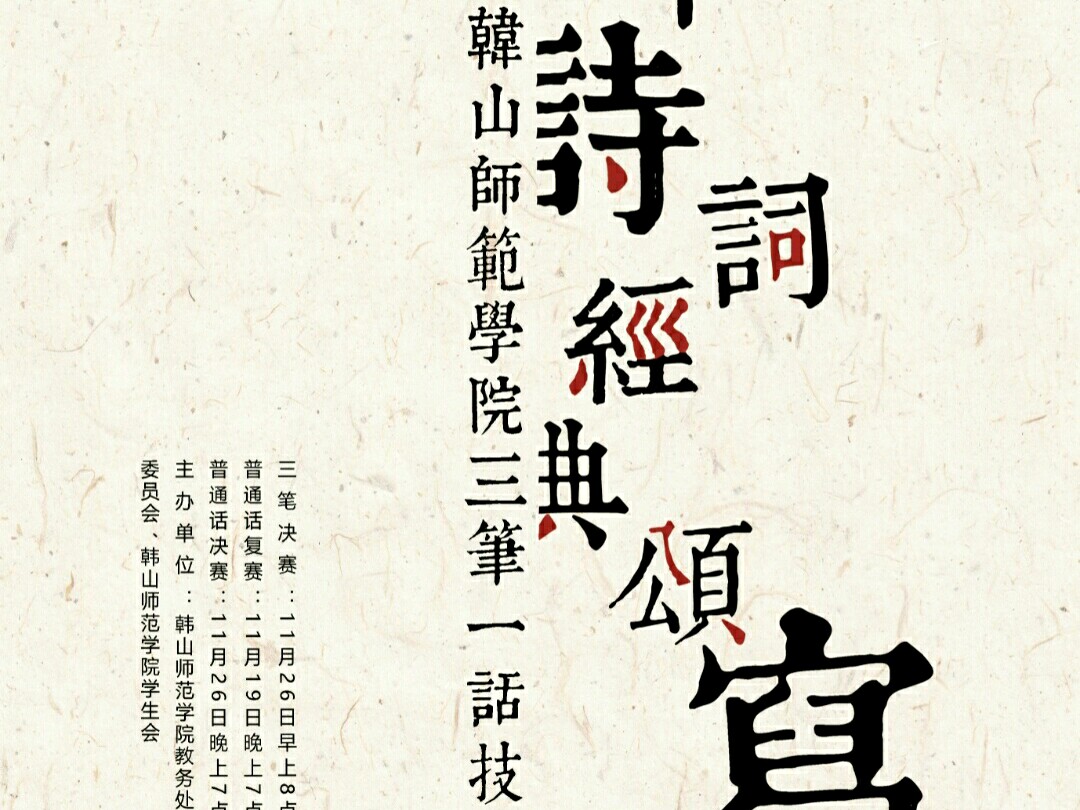 詩詞經典頌寫
韓山師範學院三筆一話技
三笔决赛：11月26日早上8点
普通话复赛：11月19日晚上7点
普通话决赛：11月26日晚上7点
主办单位：韩山师范学院教务处
委员会、韩山师范学院学生会